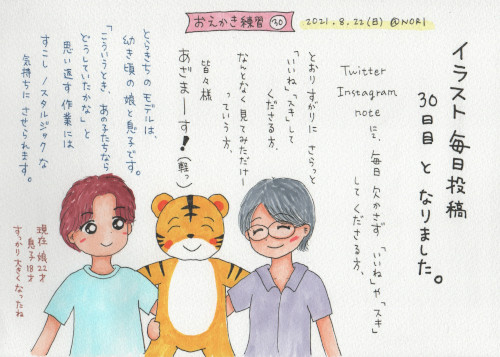 おえかき練習㉚
2021.8.22(日) @NORI
イラスト毎日投稿
30日目 と なりました。
Twitter
Instagram
note にて、毎日 欠かさず 「いいね」や「スキ」
してくださる方、
とおりすがりに さらっと
「いいね」「スキ」して
くださる方、
なんとなく見てみただけー
っていう方、
皆々様
あざまーす!(軽っ)
とらきちの モデルは、
幼き頃の 娘と息子です。
「こういうとき、あの子たちなら
どうしていたかな」と
思い返す 作業には
すこし ノスタルジックな
気持ちに させられます。
現在 娘22才
息子18才
すっかり大きくなったね